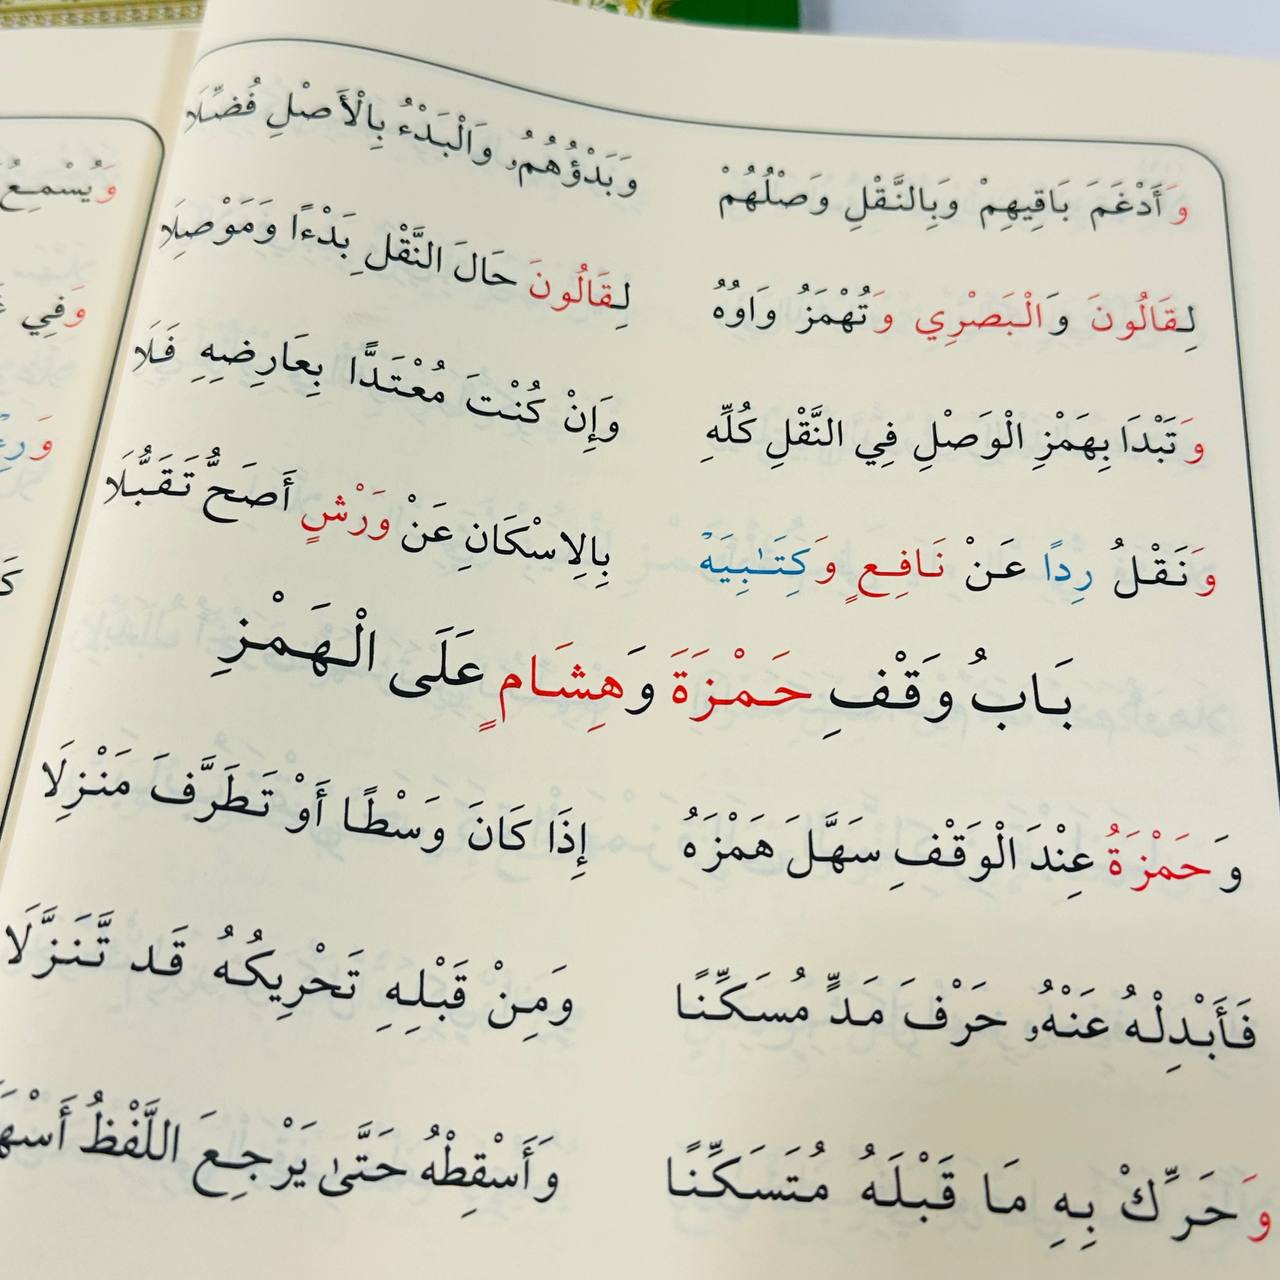 وَأَدْغَمَ بَاقِيهِمْ وَبِالنَّقْلِ وَصْلُهُمْ وَبَدْؤُهُمُۥ وَالْبَدْءُ بِالْأَصْلِ فُضِّلَا
لِقَالُونَ وَالْبَصْرِي وَتُهْمَزُ وَاوُهُ لِقَالُونَ حَالَ النَّقْلِ بَدْءًا وَمَوْصِلَا
وَتَبْدَا بِهَمْزِ الْوَصْلِ فِي النَّقْلِ كُلِّهِ وَإِنْ كُنْتَ مُعْتَدًّا بِعَارِضِهِ فَلَا
وَنَقْلُ رِدًا عَنْ نَافِعٍ وَكِتَٰبِيَهْ بِالِاسْكَانِ عَنْ وَرْشٍ أَصَحُّ تَقَبُّلَا
بَابُ وَقْفِ حَمْزَةَ وَهِشَامٍ عَلَى الْهَمْزِ
وَحَمْزَةُ عِنْدَ الْوَقْفِ سَهَّلَ هَمْزَهُ إِذَا كَانَ وَسْطًا أَوْ تَطَرَّفَ مَنْزِلَا
فَأَبْدِلْهُ عَنْهُۥ حَرْفَ مَدٍّ مُسَكِّنًا وَمِنْ قَبْلِهِ تَحْرِيكُهُ قَد تَّنَزَّلَا
وَحَرِّكْ بِهِ مَا قَبْلَهُ مُتَسَكِّنًا وَأَسْقِطْهُ حَتَّىٰ يَرْجِعَ اللَّفْظُ
وَيُسْمِعُ
وَفِي